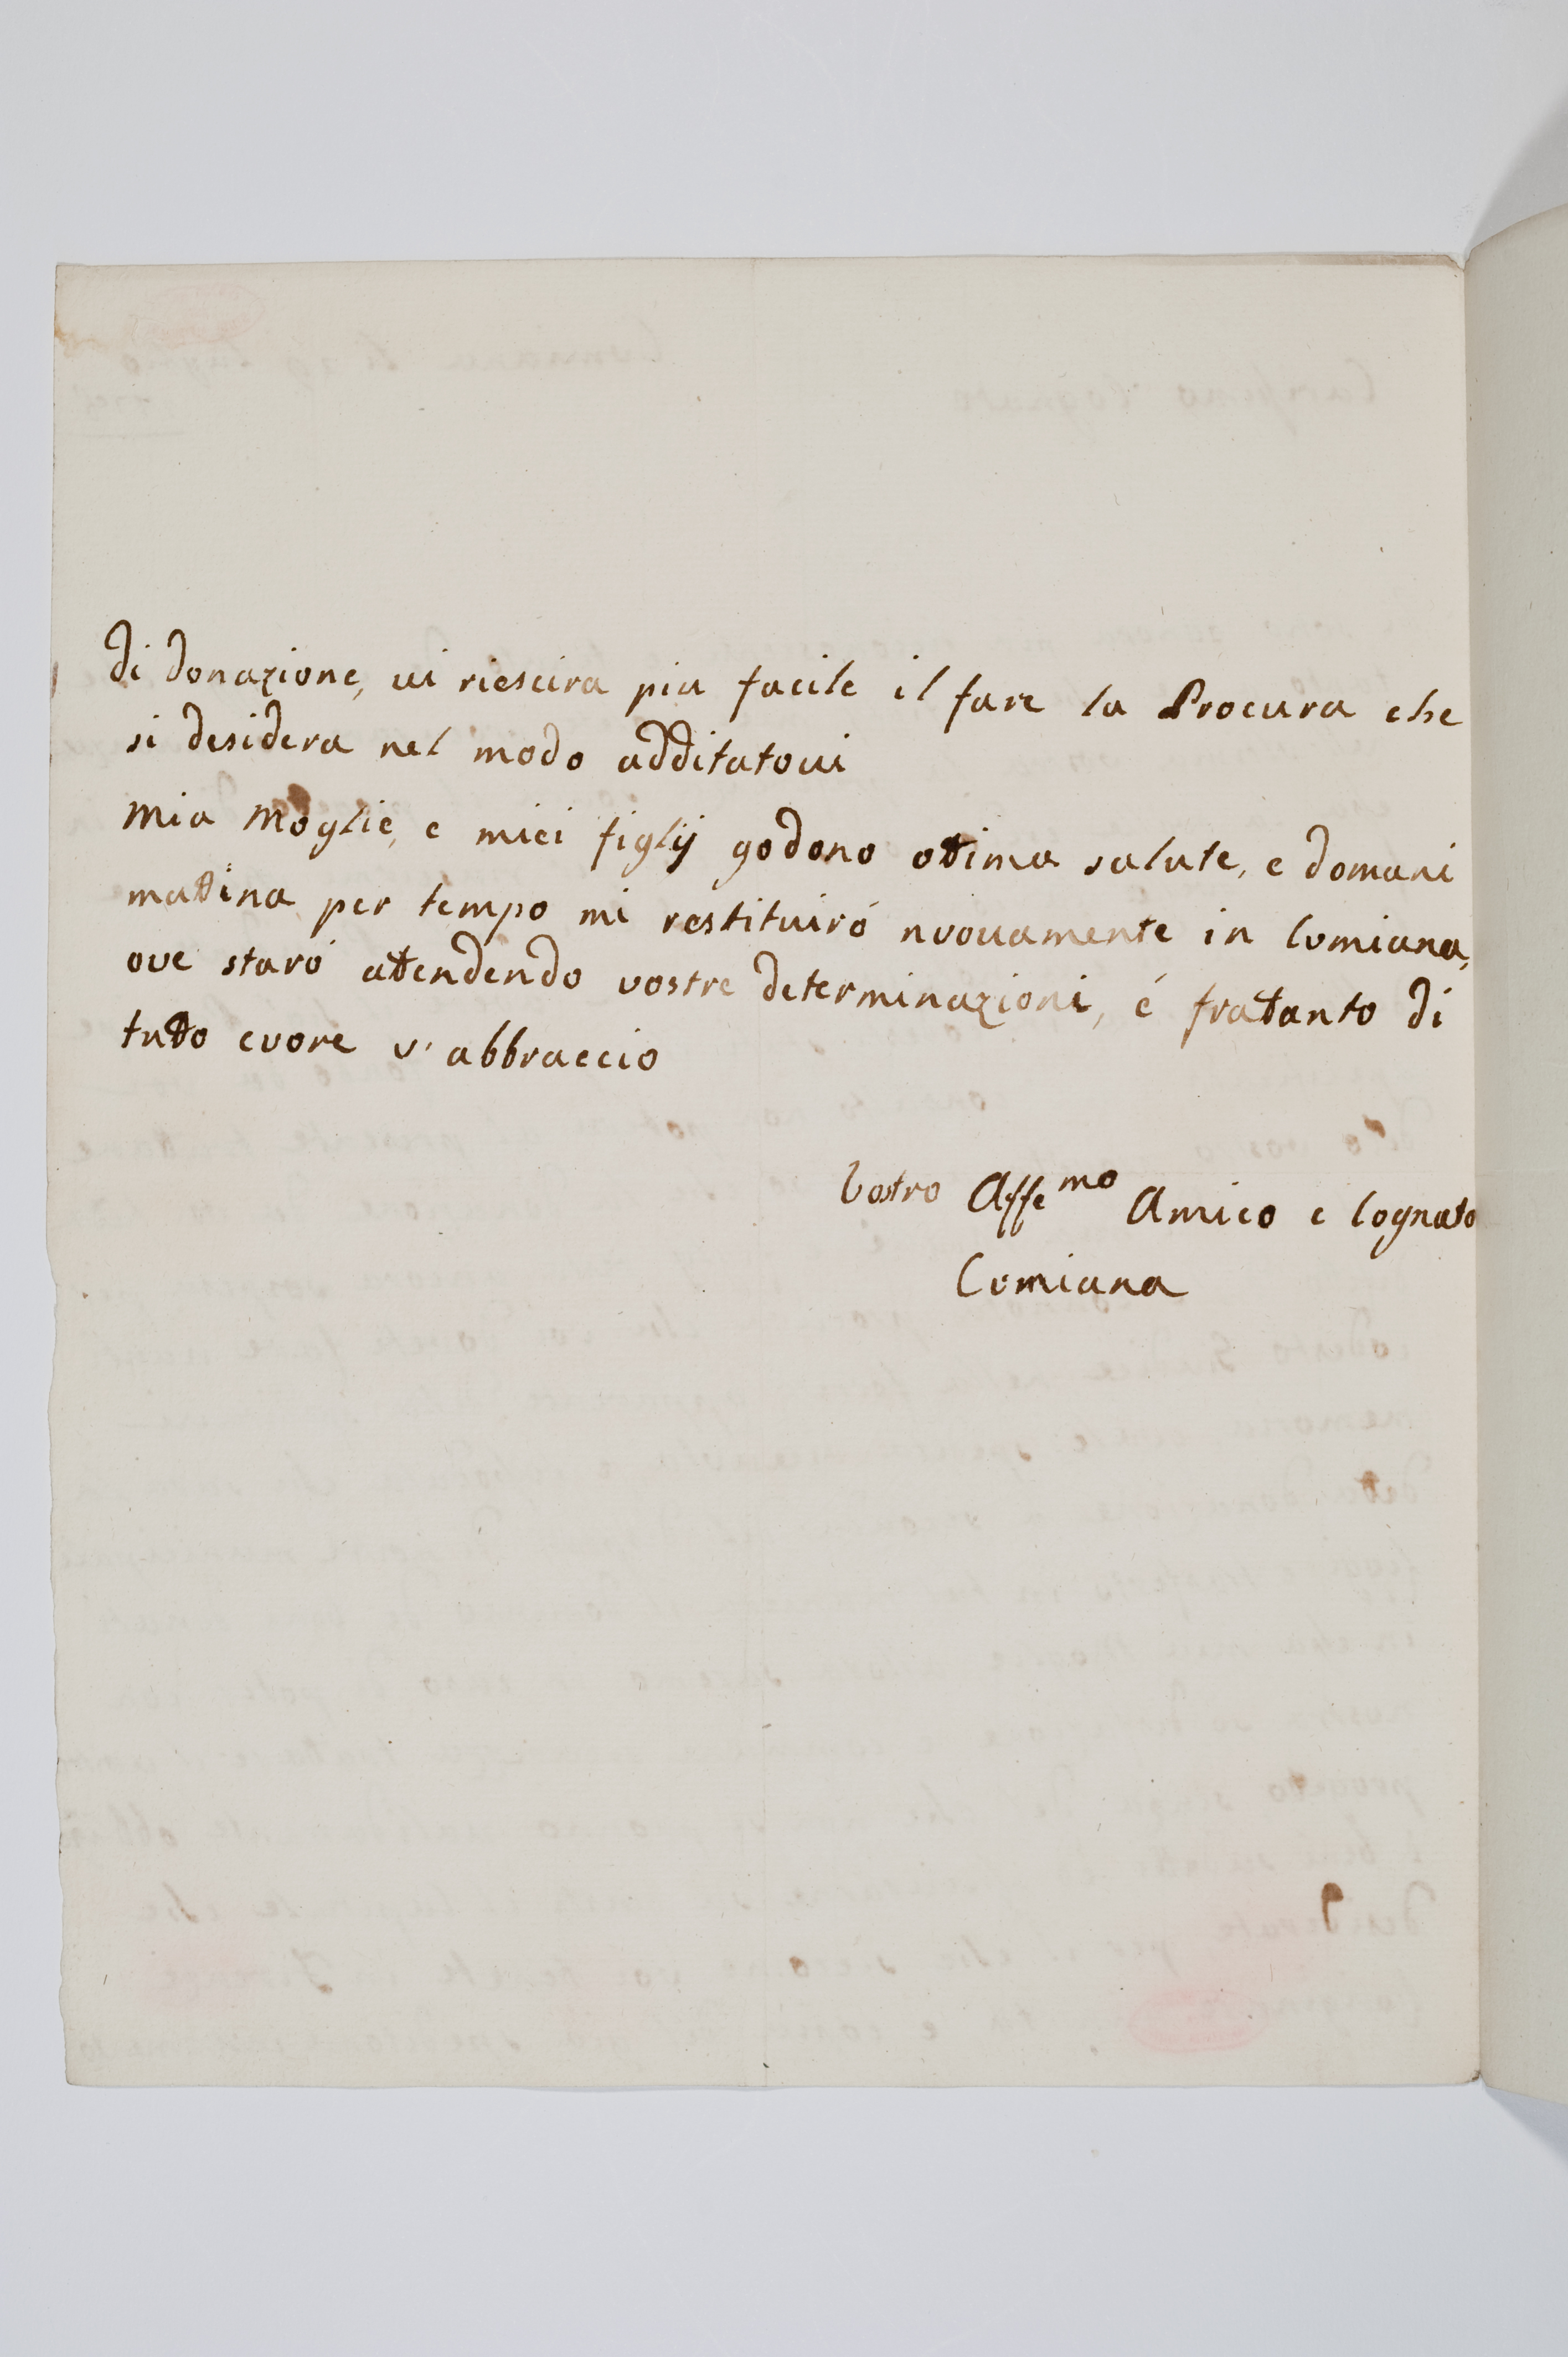 di donazione, vi riescira piu facile il fare la Procura che
si desidera nel modo additatovi
Mia Moglie, e miei figlij godono ottima salute, e domani
mattina per tempo mi restituiró nuovamente in Cumiana,
ove staró attendendo vostre determinazioni, é frattanto di
tutto cuore v'abbraccio
Vostro Affemo Amico e Cognato
Cumiana